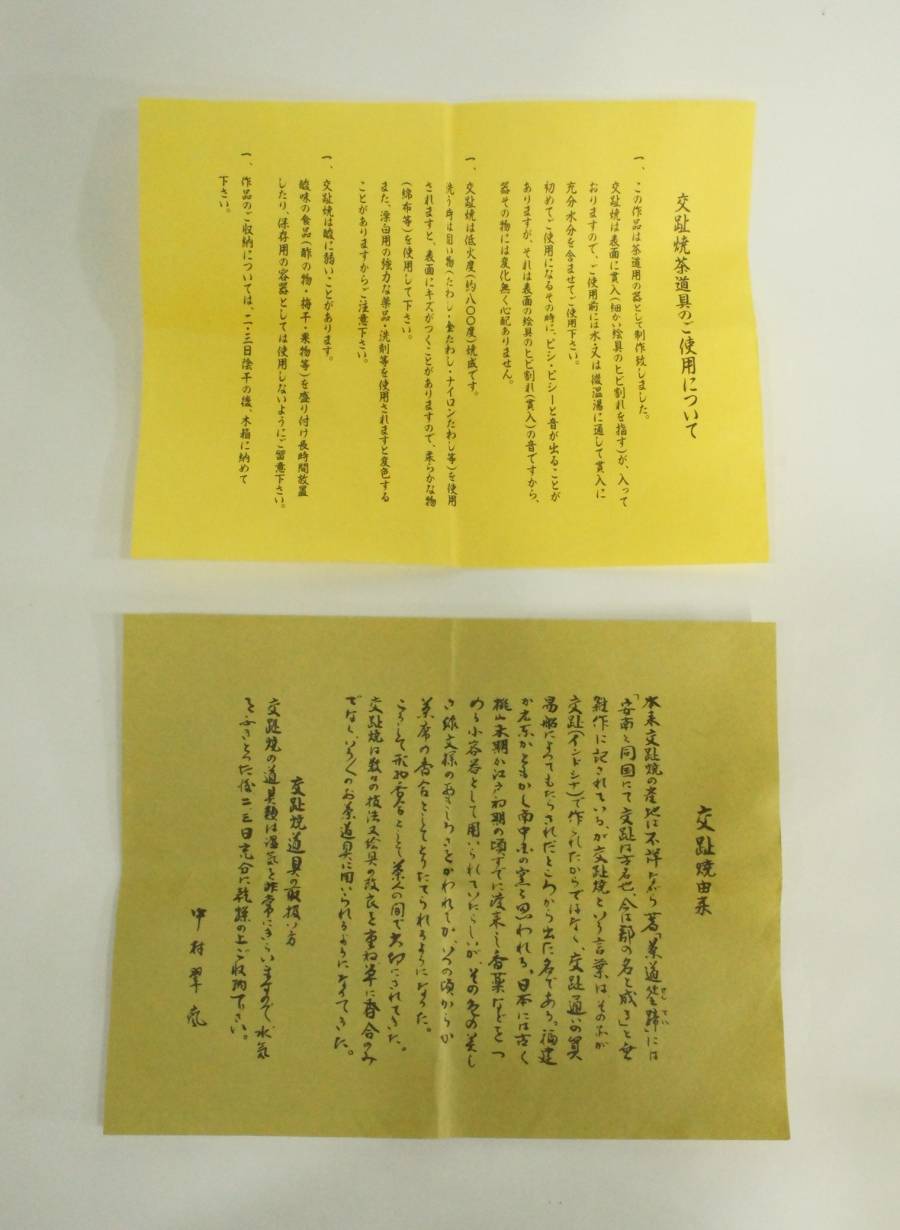 交趾焼茶道具のご使用について
一、この作品は茶道用の器として制作致しました。
交趾焼は表面に貫入(細かい絵具のヒビ割れを指す)が、入って
おりますので、ご使用前には水・又は微温湯に通して貫入に
充分水分を含ませてご使用下さい。
初めてご使用になるその時に、ピシ・ピシーと音が出ることが
ありますが、それは表面の絵具のヒビ割れ(貫入)の音ですから、
器その物には変化無く心配ありません。
一、交趾焼は低火度(約八〇〇度)焼成です。
洗う時は固い物(たわし・金たわし・ナイロンたわし等)を使用
されますと、表面にキズがつくことがありますので、柔らかな物
(綿布等)を使用して下さい。
また、漂白用の強力な薬品・洗剤等を使用されますと変色する
ことがありますからご注意下さい。
一、交趾焼は酸に弱いことがあります。
酸味の食品(酢の物・梅干・果物等)を盛り付け長時間放置
したり、保存用の容器としては使用しないようにご留意下さい。
一、作品のご収納については、二・三日陰干の後、木箱に納めて
下さい。
交趾焼由来
本来交趾焼の産地は不詳ながら著「茶道筌蹄」には
「安南と同国にて交趾は方名也、今は郡の名と成る」と
雑作に記されている、が交趾焼という言葉はその が
交趾(インドシナ)で作られたからではなく、交趾通いの貿
易船によってもたらされたところから出た名である。福建
か広東かともかく南中国の窯と思われる。日本には古く
桃山末期か江戸初期の頃すでに渡来し香薬などをつ
める小容器として用いられていたらしいが、その色の美し
さ 文様のおもしろさとかわれてか、いつの頃からか
茶席の香合としてとりたてられるようになった。
こうして形物香合として茶人の間で大切にされてきた。
交趾焼は数々の技法又絵具の改良を重ね単に香合のみ
でなく、いろいろのお茶道具に用いられるようになってきた。
交趾焼道具の取扱い方
交趾焼の道具類は湿気を非常にきらいますので、水気
をふきとった後二三日充分に乾燥の上ご収納下さい。
中村翠嵐